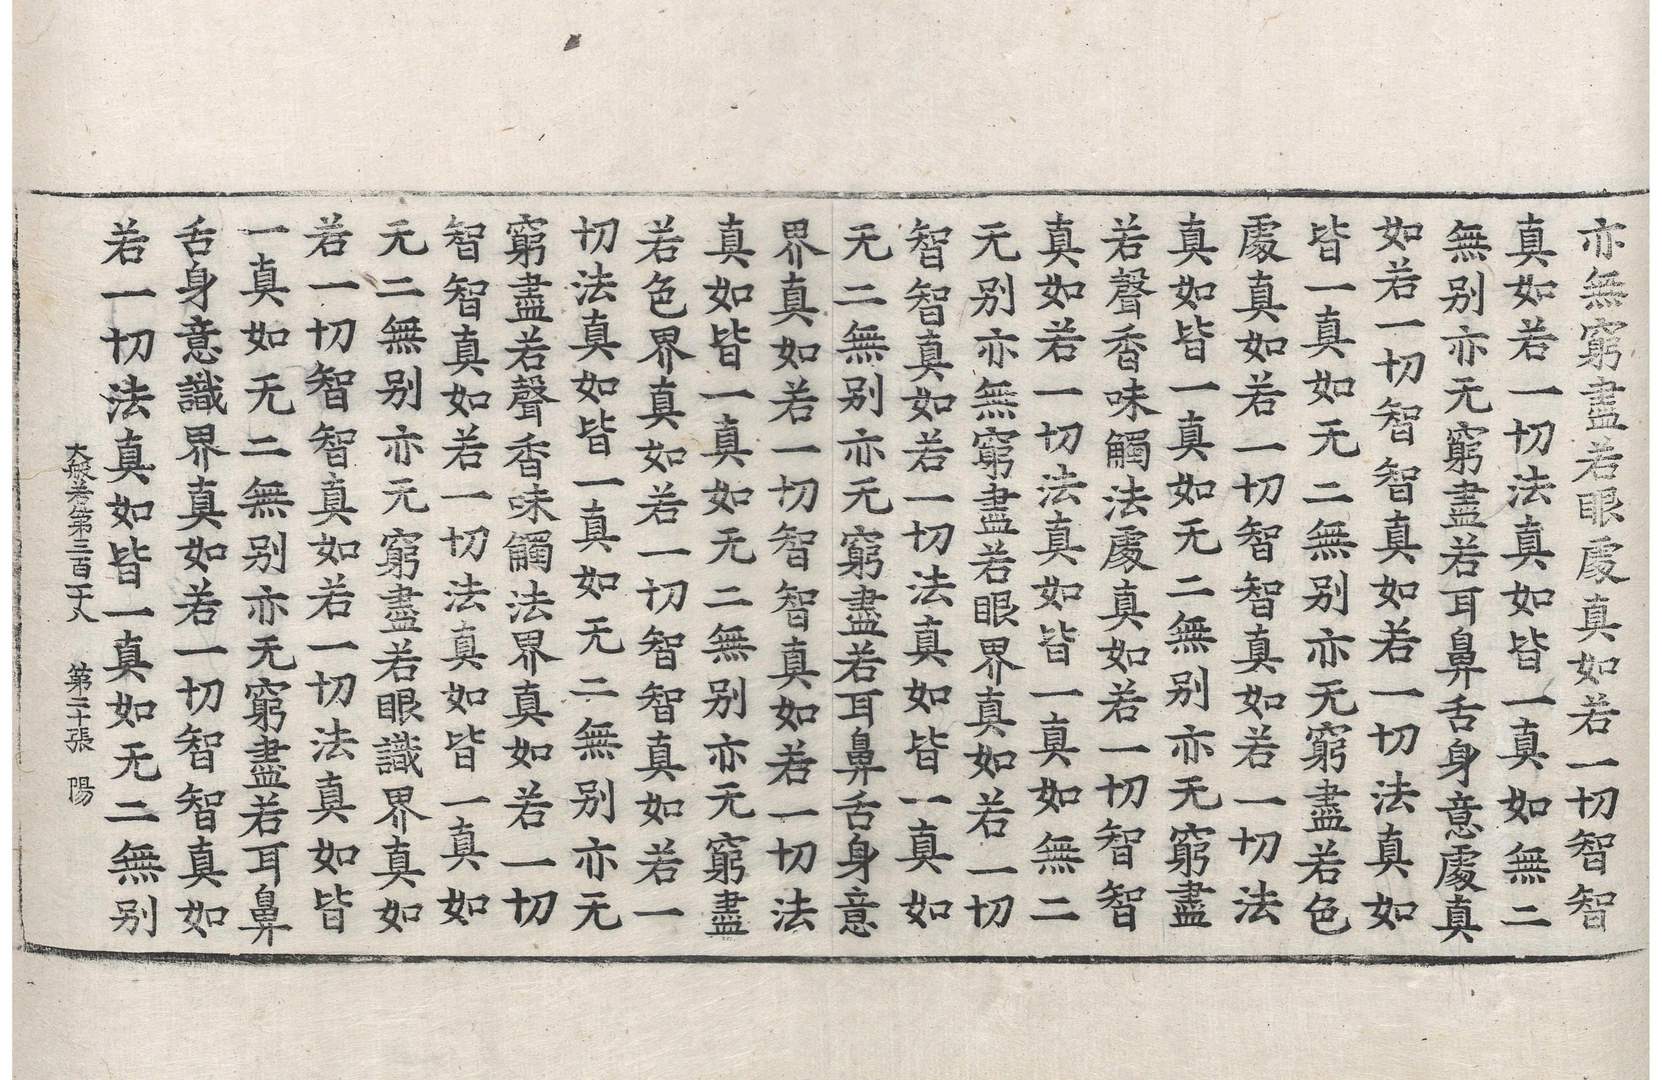 亦無窮盡若眼處真如若一切智智
真如若一切法真如皆一真如無二
無别亦无窮盡若耳鼻舌身意處真
如若一切智智真如若一切法真如
皆一真如无二無别亦无窮盡若色
處真如若一切智智真如若一切法
真如皆一真如无二無别亦无窮盡
若聲香味觸法處真如若一切智智
真如若一切法真如皆一真如無二
无别亦無窮盡若眼界真如若一切
智智真如若一切法真如皆一真如
无二無别亦无窮盡若耳鼻舌身意
界真如若一切智智真如若一切法
真如皆一真如无二無别亦无窮盡
若色界真如若一切智智真如若一
切法真如皆一真如无二無别亦无
窮盡若聲香味觸法界真如若一切
智智真如若一切法真如皆一真如
无二無别亦无窮盡若眼識界真如
若一切智智真如若一切法真如皆
一真如无二無别亦无窮盡若耳鼻
舌身意識界真如若一切智智真如
若一切法真如皆一真如无二無别
大般若第三百二十八 第二十張 陽